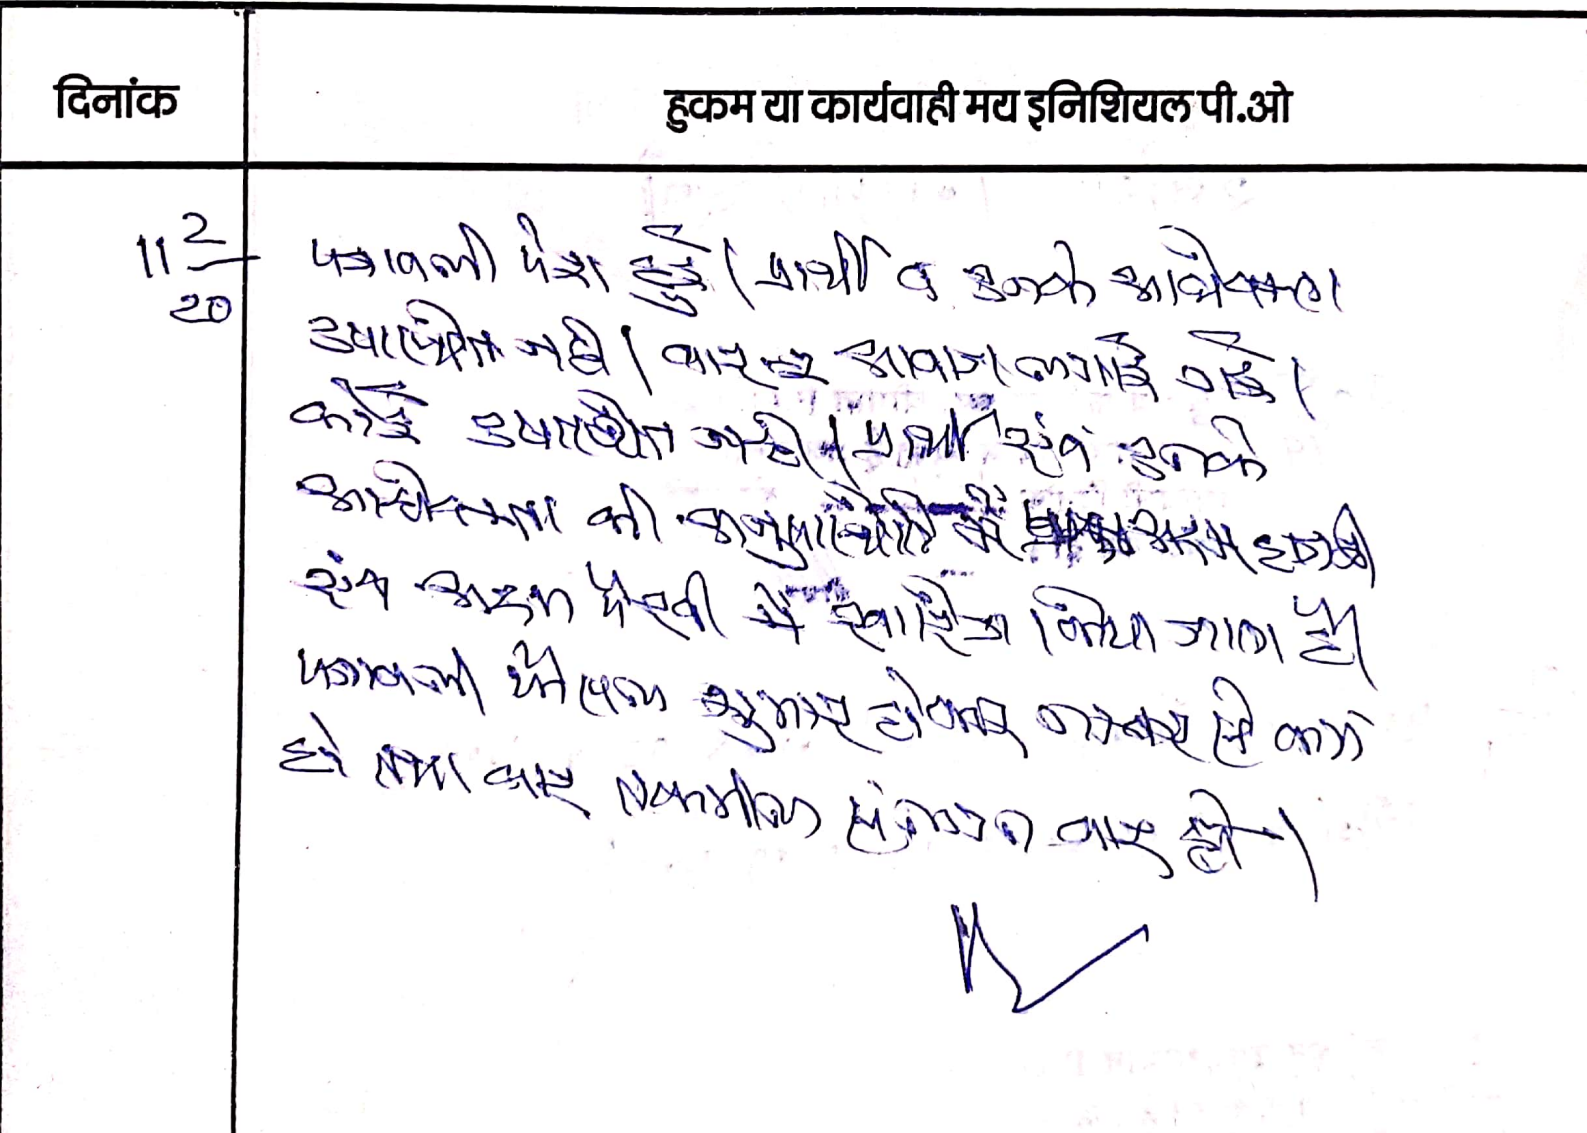 दिनांक
हुकम या कार्यवाही मय इनिशियल पी.ओ
11 2/20
पत्रावली पेश हुई। प्रार्थी व उनके अधिवक्ता
उपस्थित नही। बार बार आवाज लगाई गई।
कोई उपस्थित नही। प्रार्थी एवं उनके
अधिवक्ता की अनुपस्थिति में अदम हाजरी
एंव अदम पैरवी में खारिज किया जाता है।
पत्रावली फैसल शुमार होकर नम्बर से कम
हो तथा बाद तकमील दफ्तर हो।